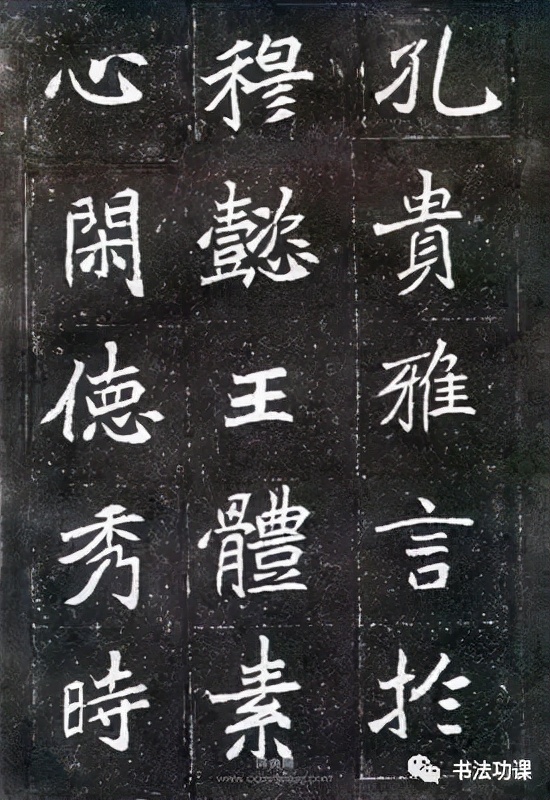 孔貴雅言於
穆懿王體素
心閑德秀時
书法功课